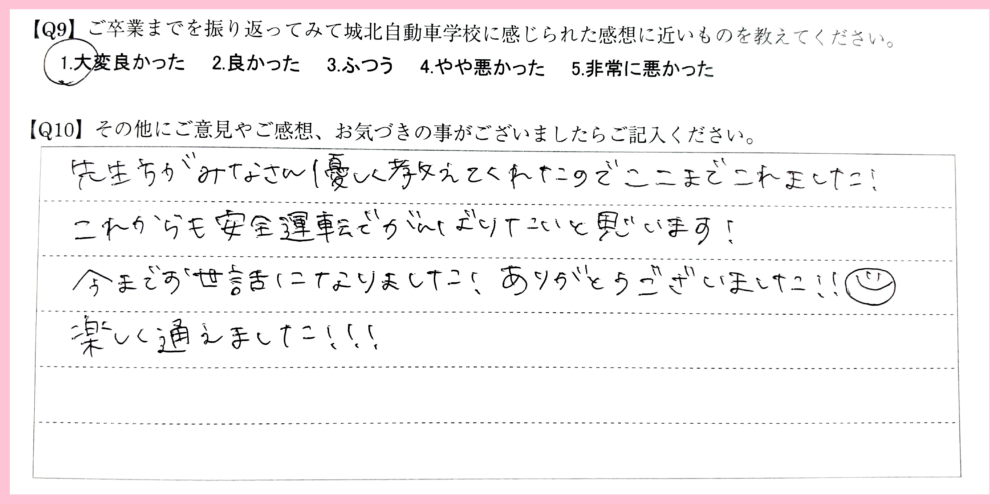 【Q9】ご卒業までを振り返ってみて城北自動車学校に感じられた感想に近いものを教えてください。
1.大変良かった 2.良かった 3.ふつう 4.やや悪かった 5.非常に悪かった
【Q10】その他にご意見やご感想、お気づきの事がございましたらご記入ください。
先生方がみなさん優しく教えてくれたのでここまでこれました!
これからも安全運転でがんばりたいと思います!
今までお世話になりました! ありがとうございました!!
楽しく通えました!!!